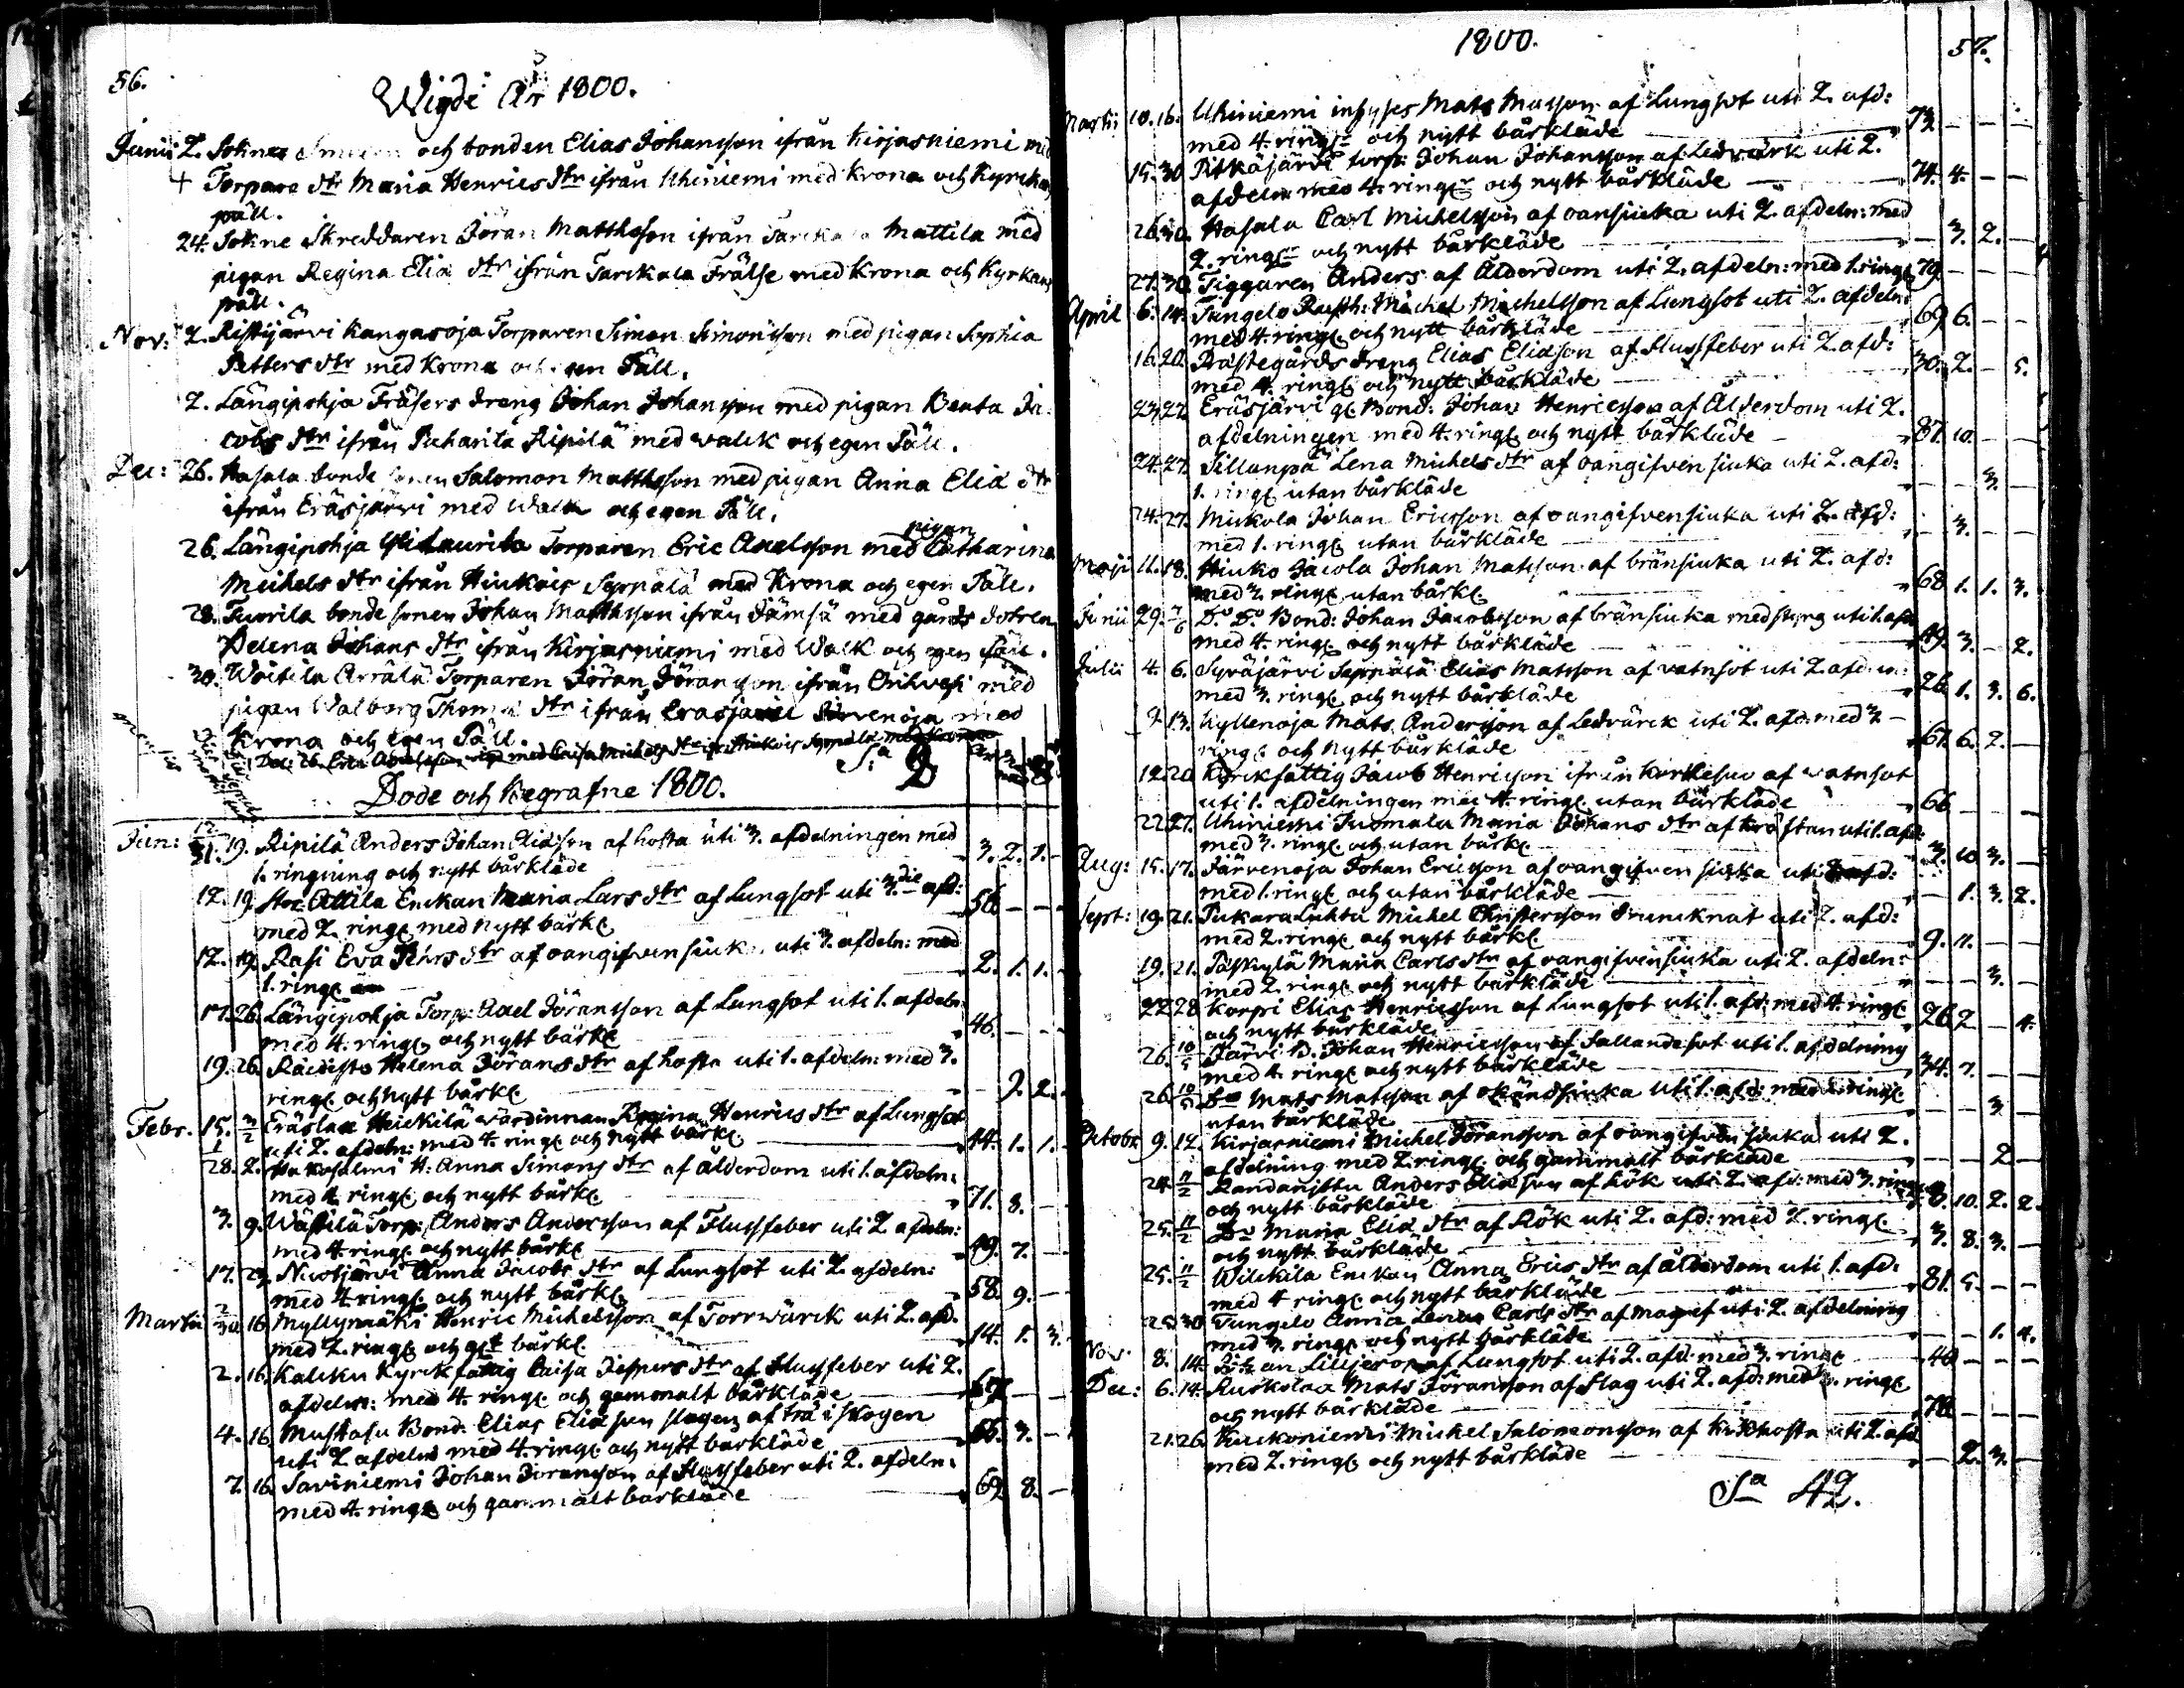 56.
Wigde År 1800.
Junii 2. Sokne och bonden Elias Johansson ifrån Kirjasniemi med
+ Torpare dtr Maria Henrics dtr ifrån Uhiniemi med Krona och Kyrkans
päll.
24. Sokne Skreddaren Jöran Matthsson ifrån Mattila med
pigan Regina Elia dtr ifrån Tarckala Frälse med Krona och Kyrkans
päll.
Nov: 2. Ristijärvi Kangasoja Torparen Simon Simonsson med pigan Sophia
Petters dtr med Krona och egen Päll.
2. Längipohja Fräsers dreng Johan Johansson med pigan Beata Ja-
cobs dtr ifrån Ripilä med walck och egen Päll.
Dec: 26. Hasala bonde sonen Salomon Matthsson med pigan Anna Elia dtr
ifrån Eräsjärvi med Walck och egen Päll.
pigan
26. Längipohja Torparen Eric Axelsson med Catharina
Michels dtr ifrån Hiukois Seppälä med Krona och egen Päll.
28. Tuorila bonde sonen Johan Matthsson ifrån Jämsä med gårds dotren
Helena Johans dtr ifrån Kirjasniemi med Walk och egen Päll.
30. Woitila Arrälä Torparen Jöran Jöransson ifrån Orihvesi med
pigan Walborg Thomæ dtr ifrån Järvenoja med
Krona och egen Päll.
Dec: 26. Eric Axelsson med Caisa Michels dtr Hiukois Seppälä med Krona
Sa 9
Döde och Begrafne 1800.
Jan: 12/31. 19. Ripilä Anders Johan Eliasson af hosta uti 3. afdelningen med
1. ringning och nytt bårkläde 3. 2. 1. -
12. 19. Attila Enckan Maria Lars dtr af Lungsot uti 3die afd:
med 2. ring. med nytt bårk. 56 - - -
12. 19. Rasi Eva dtr af oangifven siuk. uti 3. afdeln: med
1. ring. 2. 1. 1. -
17. 26. Längipohja Torp: Axel Jöransson af Lungsot uti 1. afdeln:
med 4. ring. och nytt bårk. 46. - - -
19. 26. Helena Jörans dtr af hosta uti 1. afdeln: med 3.
ring. och nytt bårk. - 9. 2. -
Febr. 15. 2/3 Eräslax Heickilä wärdinnan Regina Henrics dtr af Lungsot
uti 2. afdeln: med 4. ring. och nytt bårk. 44. 1. 1. -
28. 2. H: Anna Simons dtr af ålderdom uti 1. afdeln:
med 4 ring. och nytt bårk. 71. 8. -
3. 9. Wästilä Torp: Anders Andersson af Flussfeber uti 2 afdeln:
med 4 ring. och nytt bårk. 49. 7. -
17. 23. Anna Jacobs dtr af Lungsot uti 2. afdeln:
med 4 ring. och nytt bårk. 58. 9. -
Martii 2/30. 16. Myllymäki Henric Michelsson af Torrwärck uti 2. afd.
med 2. ring. och glt bårkl. 14. 1. 3.
2. 16. Kalcku Kyrckfattig Caisa Jespers dtr af Flussfeber uti 2.
afdeln: med 4. ring. och gammalt bårkläde 67 - -
4. 16. Mustasu Bond. Elias Eliasson slagen af trä i skogen
uti 2 afdeln med 4. ring. och nytt bårkläde 55. 3. -
7. 16. Saviniemi Johan Jöransson af Flussfeber uti 2. afdeln:
med 4. ring. och gammalt bårkläde 69. 8. -
1800.
57.
Martii 10. 16. Uhiniemi inhyses Mats Matsson af Lungsot uti 2. afd:
med 4. ring. och nytt bårkläde 73. - - -
15. 30. Pitkäjärvi torp: Johan Johansson af Ledvärk uti 2.
afdeln med 4. ring. och nytt bårkläde 74. 4. - -
26. 30. Hasala Carl Michelsson af oansiuka uti 2. afdeln: med
2. ring. och nytt bårkläde - 3. 2. -
27. 30. Tiggaren Anders af Ålderdom uti 2. afdeln: med 1. ring. 79. - - -
April 6. 14. Tungelo Rusth: Michel Michelsson af Lungsot uti 2. afdeln:
med 4. ring. och nytt bårkläde 69. 6. - -
16. 20. Prästegårds dreng Elias Eliasson af Flussfeber uti 2. afd:
med 4. ring. och nytt bårkläde 30. 2. - 5.
23. 27. Eräsjärvi gl. Bond: Johan Henricsson af Ålderdom uti 2.
afdelningen med 4. ring. och nytt bårkläde 87. 10. - -
24. 27. Sillanpä Lena Michels dtr af oangifven siuka uti 2. afd:
1. ring. utan bårkläde - - 3. -
24. 27. Mickola Johan Ericsson af oangifven siuka uti 2. afd:
med 1. ring. utan bårkläde - 3. - -
Maji 11. 18. Hiuko Jacola Johan Matsson af bränsiuka uti 2. afd:
med 2. ring. utan bårk. 68 1. 1. 3.
Junii 29. Do Do Bond: Johan Jacobsson af bränsiuka med styng uti 1. afd:
med 4. ring. och nytt bårkläde 49. 3. - 2.
Julii 4. 6. Syväjärvi Seppälä Elias Matsson af vatnsot uti 2 afd:
med 3. ring. och nytt bårkläde 26. 1. 3. 6.
9. 13. Kyllenoja Mats Andersson af Ledvärck uti 2. afd. med 3
ring. och nytt bårkläde 61. 6. 2. -
12. 20. Kyrckfattig Jacob Henricsson ifrån af watnsot
uti 1. afdelningen med 4. ring. utan bårkläde 66 - -
22. 27. Uhiniemi Tuomala Maria Johans dtr af trånstan uti 1. afd:
med 3. ring. och utan bårk. 3. 10. 3. -
Aug: 15. 17. Järvenoja Johan Ericsson af oangifven siuka uti afd:
med 1. ring. och utan bårkläde - 1. 3. 2.
Sept: 19. 21. Michel Christersson Druncknat uti 2. afd:
med 2. ring. och nytt bårkl. 9. 11. - -
19. 21. Maria Carls dtr af oangifven siuka uti 2. afdeln:
med 2. ring. och nytt bårkläde - - 3. -
22. 28. Korpi Elias Henricsson af Lungsot uti 1. afd: med 4. ring.
och nytt bårkläde 26. 2. - 4.
26. Järvi B. Johan Henricsson af Fallandesot uti 1. afdelning
med 4. ring. och nytt bårkläde 34. 7. -
26. Do Mats Matsson af okänd siuka uti 1. afd: med 2 ring.
utan bårkläde - - 3. -
Octobr: 9. 12. Kirjasniemi Michel Jöransson af oangifven siuka uti 2.
afdelning med 2. ring. och gammalt bårkläde - - 2 -
24. 11/2 Anders Eliasson af Rök uti 2. afd: med 3. ring.
och nytt bårkläde 8. 10. 2. 2.
25. 11/2 Do Maria Elia dtr af Rök uti 2. afd: med 2. ring.
och nytt bårkläde 3. 8. 3. -
25. 11/2 Wilckila Enckan Anna Erics dtr af ålderdom uti 1. afd.
med 4 ring. och nytt bårkläde 81. 5. - -
25. 30 Tungelo Anna Lena Carls dtr af magref uti 2. afdelning
med 3. ring. och nytt bårkläde - - 1. 4.
Nov. 8. 14. Johan Lilljeros af Lungsot uti 2. afd: med 3. ring. 40 - - -
Dec: 6. 14. Ruokolax Mats Jöransson af Slag uti 2. afd: med 3. ring.
och nytt bårkläde 78 - - -
21. 26. Kuickoniemi Michel Salomonsson af Kikhosta uti 2. afd
med 2. ring. och nytt bårkläde - 2. 3. -
Sa 42.